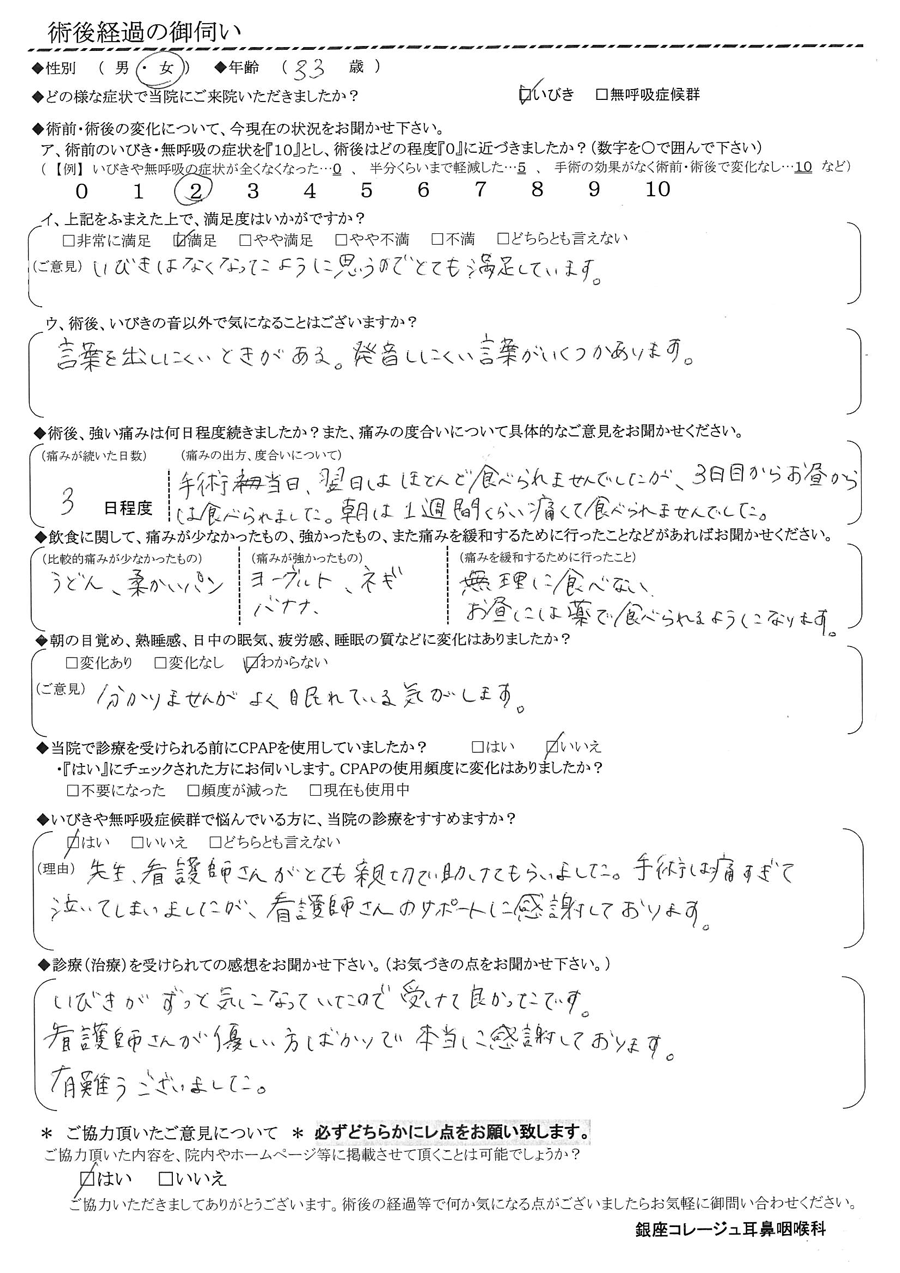 術後経過の御伺い
◆性別 ( 男 ・ 女 ) ◆年齢 ( 33 歳 )
◆どの様な症状で当院にご来院いただきましたか? ☑いびき □無呼吸症候群
◆術前・術後の変化について、今現在の状況をお聞かせ下さい。
ア、術前のいびき・無呼吸の症状を『10』とし、術後はどの程度『0』に近づきましたか?(数字を〇で囲んで下さい)
(【例】いびきや無呼吸の症状が全くなくなった…0 、 半分くらいまで軽減した…5 、 手術の効果がなく術前・術後で変化なし…10 など)
0 1 2 3 4 5 6 7 8 9 10
イ、上記をふまえた上で、満足度はいかがですか?
□非常に満足 ☑満足 □やや満足 □やや不満 □不満 □どちらとも言えない
(ご意見) いびきはなくなったように思うのでとても満足しています。
ウ、術後、いびきの音以外で気になることはございますか?
言葉を出しにくいときがある。発音しにくい言葉がいくつかあります。
◆術後、強い痛みは何日程度続きましたか?また、痛みの度合いについて具体的なご意見をお聞かせください。
(痛みが続いた日数) (痛みの出方、度合いについて)
手術当日、翌日はほとんど食べられませんでしたが、3日目からお昼から
3 日程度 は食べられました。朝は1週間くらい痛くて食べられませんでした。
◆飲食に関して、痛みが少なかったもの、強かったもの、また痛みを緩和するために行ったことなどがあればお聞かせください。
(比較的痛みが少なかったもの) (痛みが強かったもの) (痛みを緩和するために行ったこと)
うどん、柔かいパン ヨーグルト、ネギ 無理に食べない
バナナ、 お昼には薬で食べられるようになります。
◆朝の目覚め、熟睡感、日中の眠気、疲労感、睡眠の質などに変化はありましたか?
□変化あり □変化なし ☑わからない
(ご意見) 分かりませんがよく眠れている気がします。
◆当院で診療を受けられる前にCPAPを使用していましたか? □はい ☑いいえ
・『はい』にチェックされた方にお伺いします。CPAPの使用頻度に変化はありましたか?
□不要になった □頻度が減った □現在も使用中
◆いびきや無呼吸症候群で悩んでいる方に、当院の診療をすすめますか?
☑はい □いいえ □どちらとも言えない
(理由) 先生、看護師さんがとても親切で助けてもらいました。手術は痛すぎて
泣いてしまいましたが、看護師さんのサポートに感謝しております。
◆診療(治療)を受けられての感想をお聞かせ下さい。(お気づきの点をお聞かせ下さい。)
いびきがずっと気になっていたので受けて良かったです。
看護師さんが優しい方ばかりで本当に感謝しております。
有難うございました。
* ご協力頂いたご意見について * 必ずどちらかにレ点をお願い致します。
ご協力頂いた内容を、院内やホームページ等に掲載させて頂くことは可能でしょうか?
☑はい □いいえ
ご協力いただきましてありがとうございます。術後の経過等で何か気になる点がございましたらお気軽に御問い合わせください。
銀座コレージュ耳鼻咽喉科